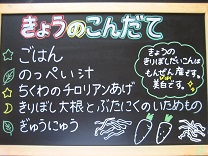 きょうのこんだて
ごはん
のっぺい汁
ちくわのチロリアンあげ
きりぼし大根とぶたにくのいためもの
ぎゅうにゅう
きょうの
きりぼしだいこんは
もんぜん産です。